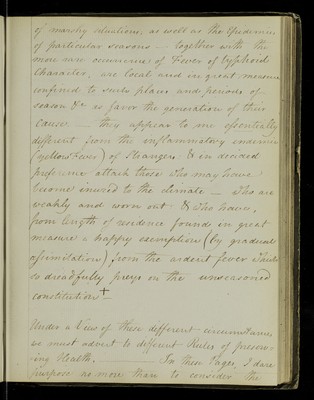 of marshy situations, as well as the Epidemics
of particular seasons — together with the
more rare occurrence of Fever of Typhoid
Character, are local and in great measure
confined to such places and periods of
season &c as favor the generation of their
cause — they appear to me essentially
different from the inflammatory endemic
(yellow Fever) of Strangers & in decided
preference attack those who may have
become inured to the climate — who are
weakly and worn out & who have,
from length of residence found in great
measure a happy exemption (by gradual
assimilation) from the ardent fever that
so dreadfully preys on the unseasoned
constitution † —
Under a View of these different circumstances
we must advert to different Rules of preserv-
ing Health. In these Pages, I dare
purpose no more than to consider the